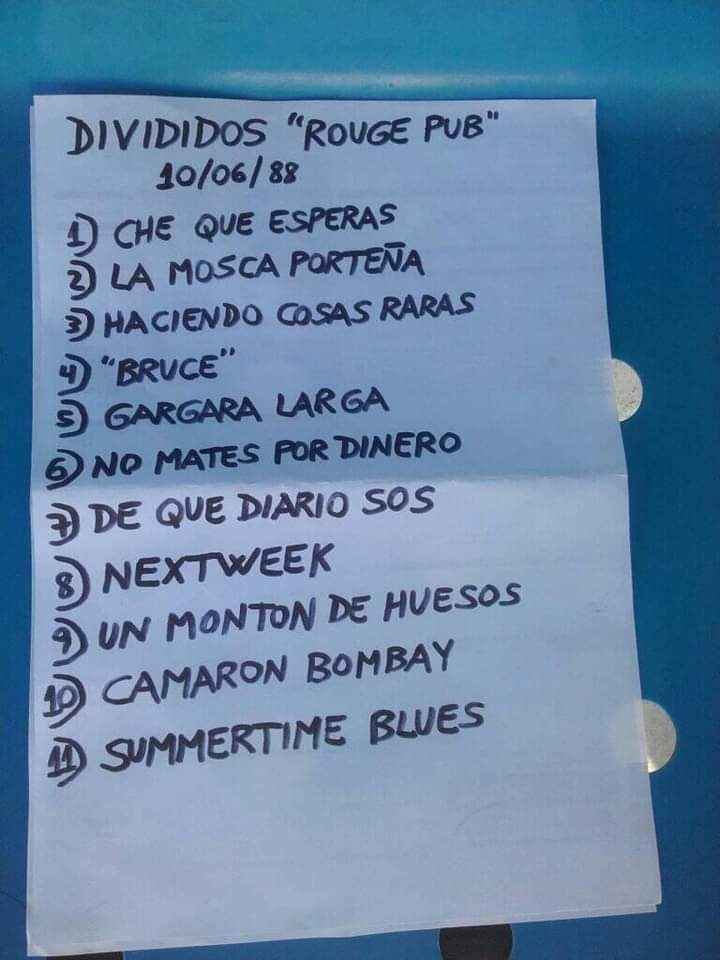 DIVIDIDOS "ROUGE PUB"
10/06/88
1) CHE QUE ESPERAS
2) LA MOSCA PORTEÑA
3) HACIENDO COSAS RARAS
4) "BRUCE"
5) GARGARA LARGA
6) NO MATES POR DINERO
7) DE QUE DIARIO SOS
8) NEXTWEEK
9) UN MONTON DE HUESOS
10) CAMARON BOMBAY
11) SUMMERTIME BLUES